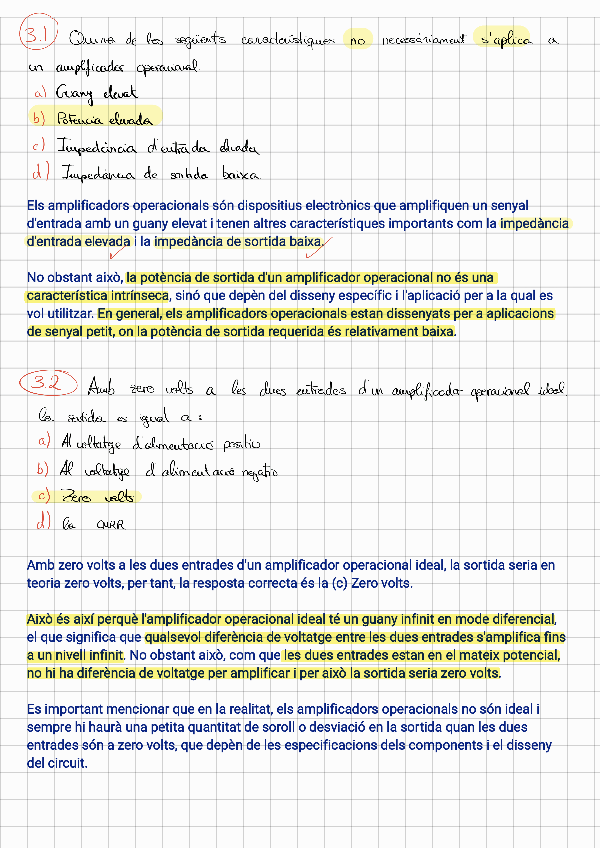 3.1 Quina de les següents característiques no necessàriament s'aplica a
un amplificador operacional
a) Guany elevat
b) Potència elevada
c) Impedància d'entrada elevada
d) Impedància de sortida baixa
Els amplificadors operacionals són dispositius electrònics que amplifiquen un senyal
d'entrada amb un guany elevat i tenen altres característiques importants com la impedància
d'entrada elevada i la impedància de sortida baixa.
No obstant això, la potència de sortida d'un amplificador operacional no és una
característica intrínseca, sinó que depèn del disseny específic i l'aplicació per a la qual es
vol utilitzar. En general, els amplificadors operacionals estan dissenyats per a aplicacions
de senyal petit, on la potència de sortida requerida és relativament baixa.
3.2 Amb zero volts a les dues entrades d'un amplificador operacional ideal,
la sortida es igual a:
a) Al voltatge d'alimentació positiu
b) Al voltatge d'alimentació negatiu
c) Zero volts
d) la CMRR
Amb zero volts a les dues entrades d'un amplificador operacional ideal, la sortida seria en
teoria zero volts, per tant, la resposta correcta és la (c) Zero volts.
Això és així perquè l'amplificador operacional ideal té un guany infinit en mode diferencial,
el que significa que qualsevol diferència de voltatge entre les dues entrades s'amplifica fins
a un nivell infinit. No obstant això, com que les dues entrades estan en el mateix potencial,
no hi ha diferència de voltatge per amplificar i per això la sortida seria zero volts.
Es important mencionar que en la realitat, els amplificadors operacionals no són ideal i
sempre hi haurà una petita quantitat de soroll o desviació en la sortida quan les dues
entrades són a zero volts, que depèn de les especificacions dels components i el disseny
del circuit.